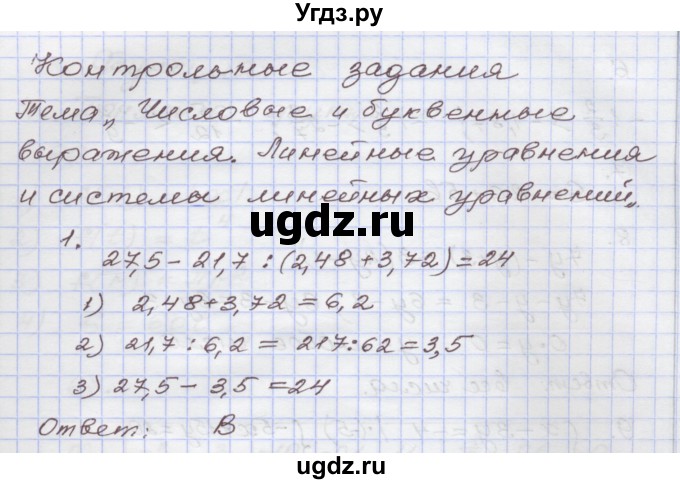 Угдз.ру
Контрольные задания
Тема „Числовые и буквенные
выражения. Линейные уравнения
и системы линейных уравнений„
ugdz.ru
1.
27,5 - 21,7 : (2,48 + 3,72) = 24
1) 2,48 + 3,72 = 6,2
2) 21,7 : 6,2 = 217 : 62 = 3,5
3) 27,5 - 3,5 = 24
Ответ: В
ugdz.ru